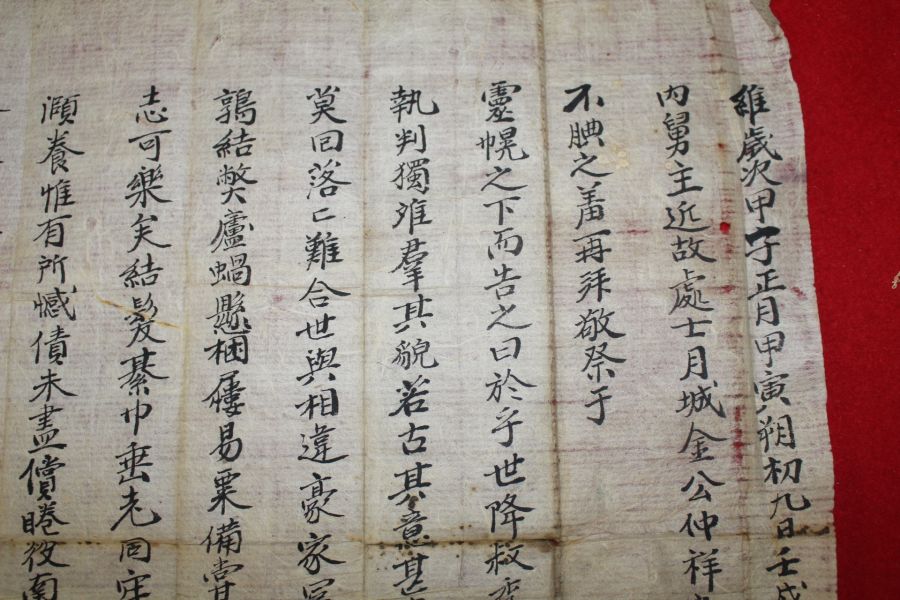 維歲次甲子正月甲寅朔初九日壬戌
內舅主近故處士月城金公仲祥
不腆之羞再拜敬祭于
靈幌之下而告之曰於乎世降敎
執判獨難羣其貌若古其意甚
莫回落亡難合世與相違豪家
鶉結獘廬蝸懸梱屨易粟備嘗
志可樂矣結髮綦巾垂老同牢
顧養惟有所憾債未盡償睠彼南